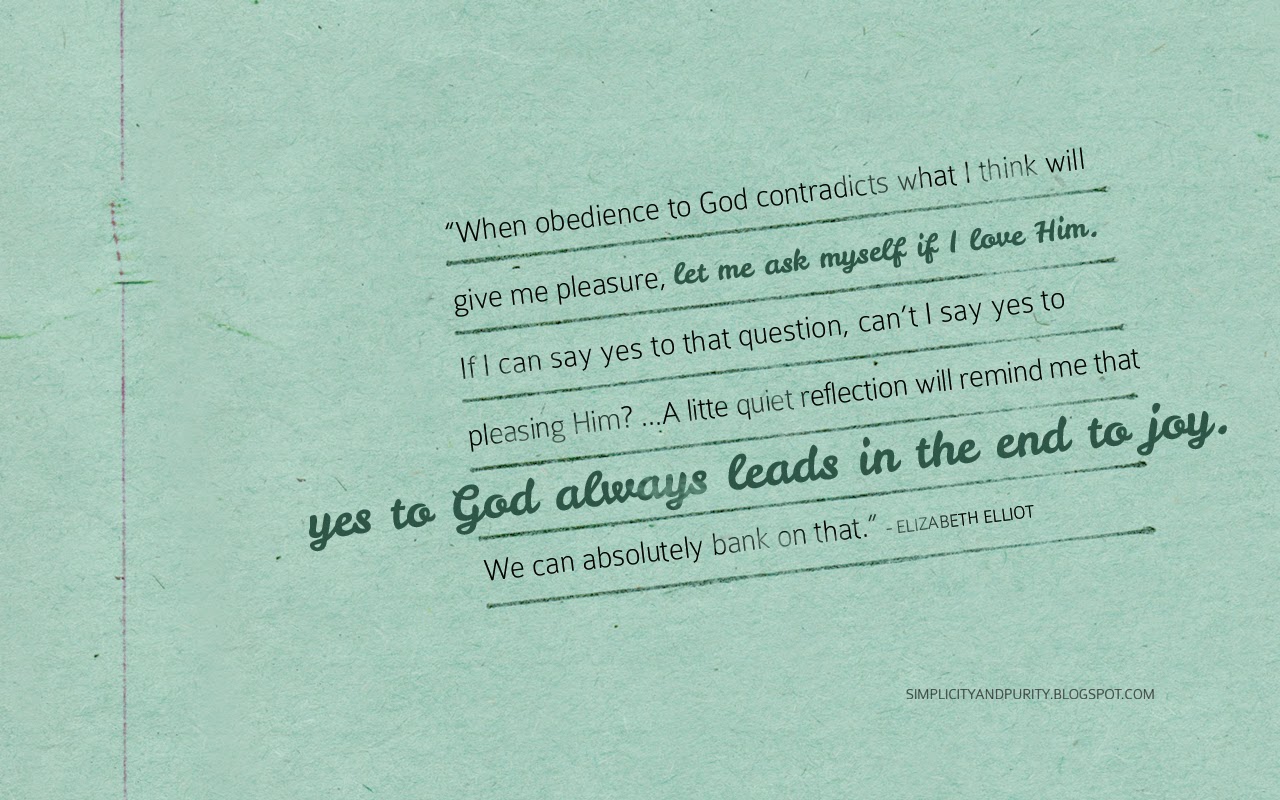 “When obedience to God contradicts what I think will
give me pleasure, let me ask myself if I love Him.
If I can say yes to that question, can’t I say yes to
pleasing Him? ...A litte quiet reflection will remind me that
yes to God always leads in the end to joy.
We can absolutely bank on that.” - ELIZABETH ELLIOT
SIMPLICITYANDPURITY.BLOGSPOT.COM